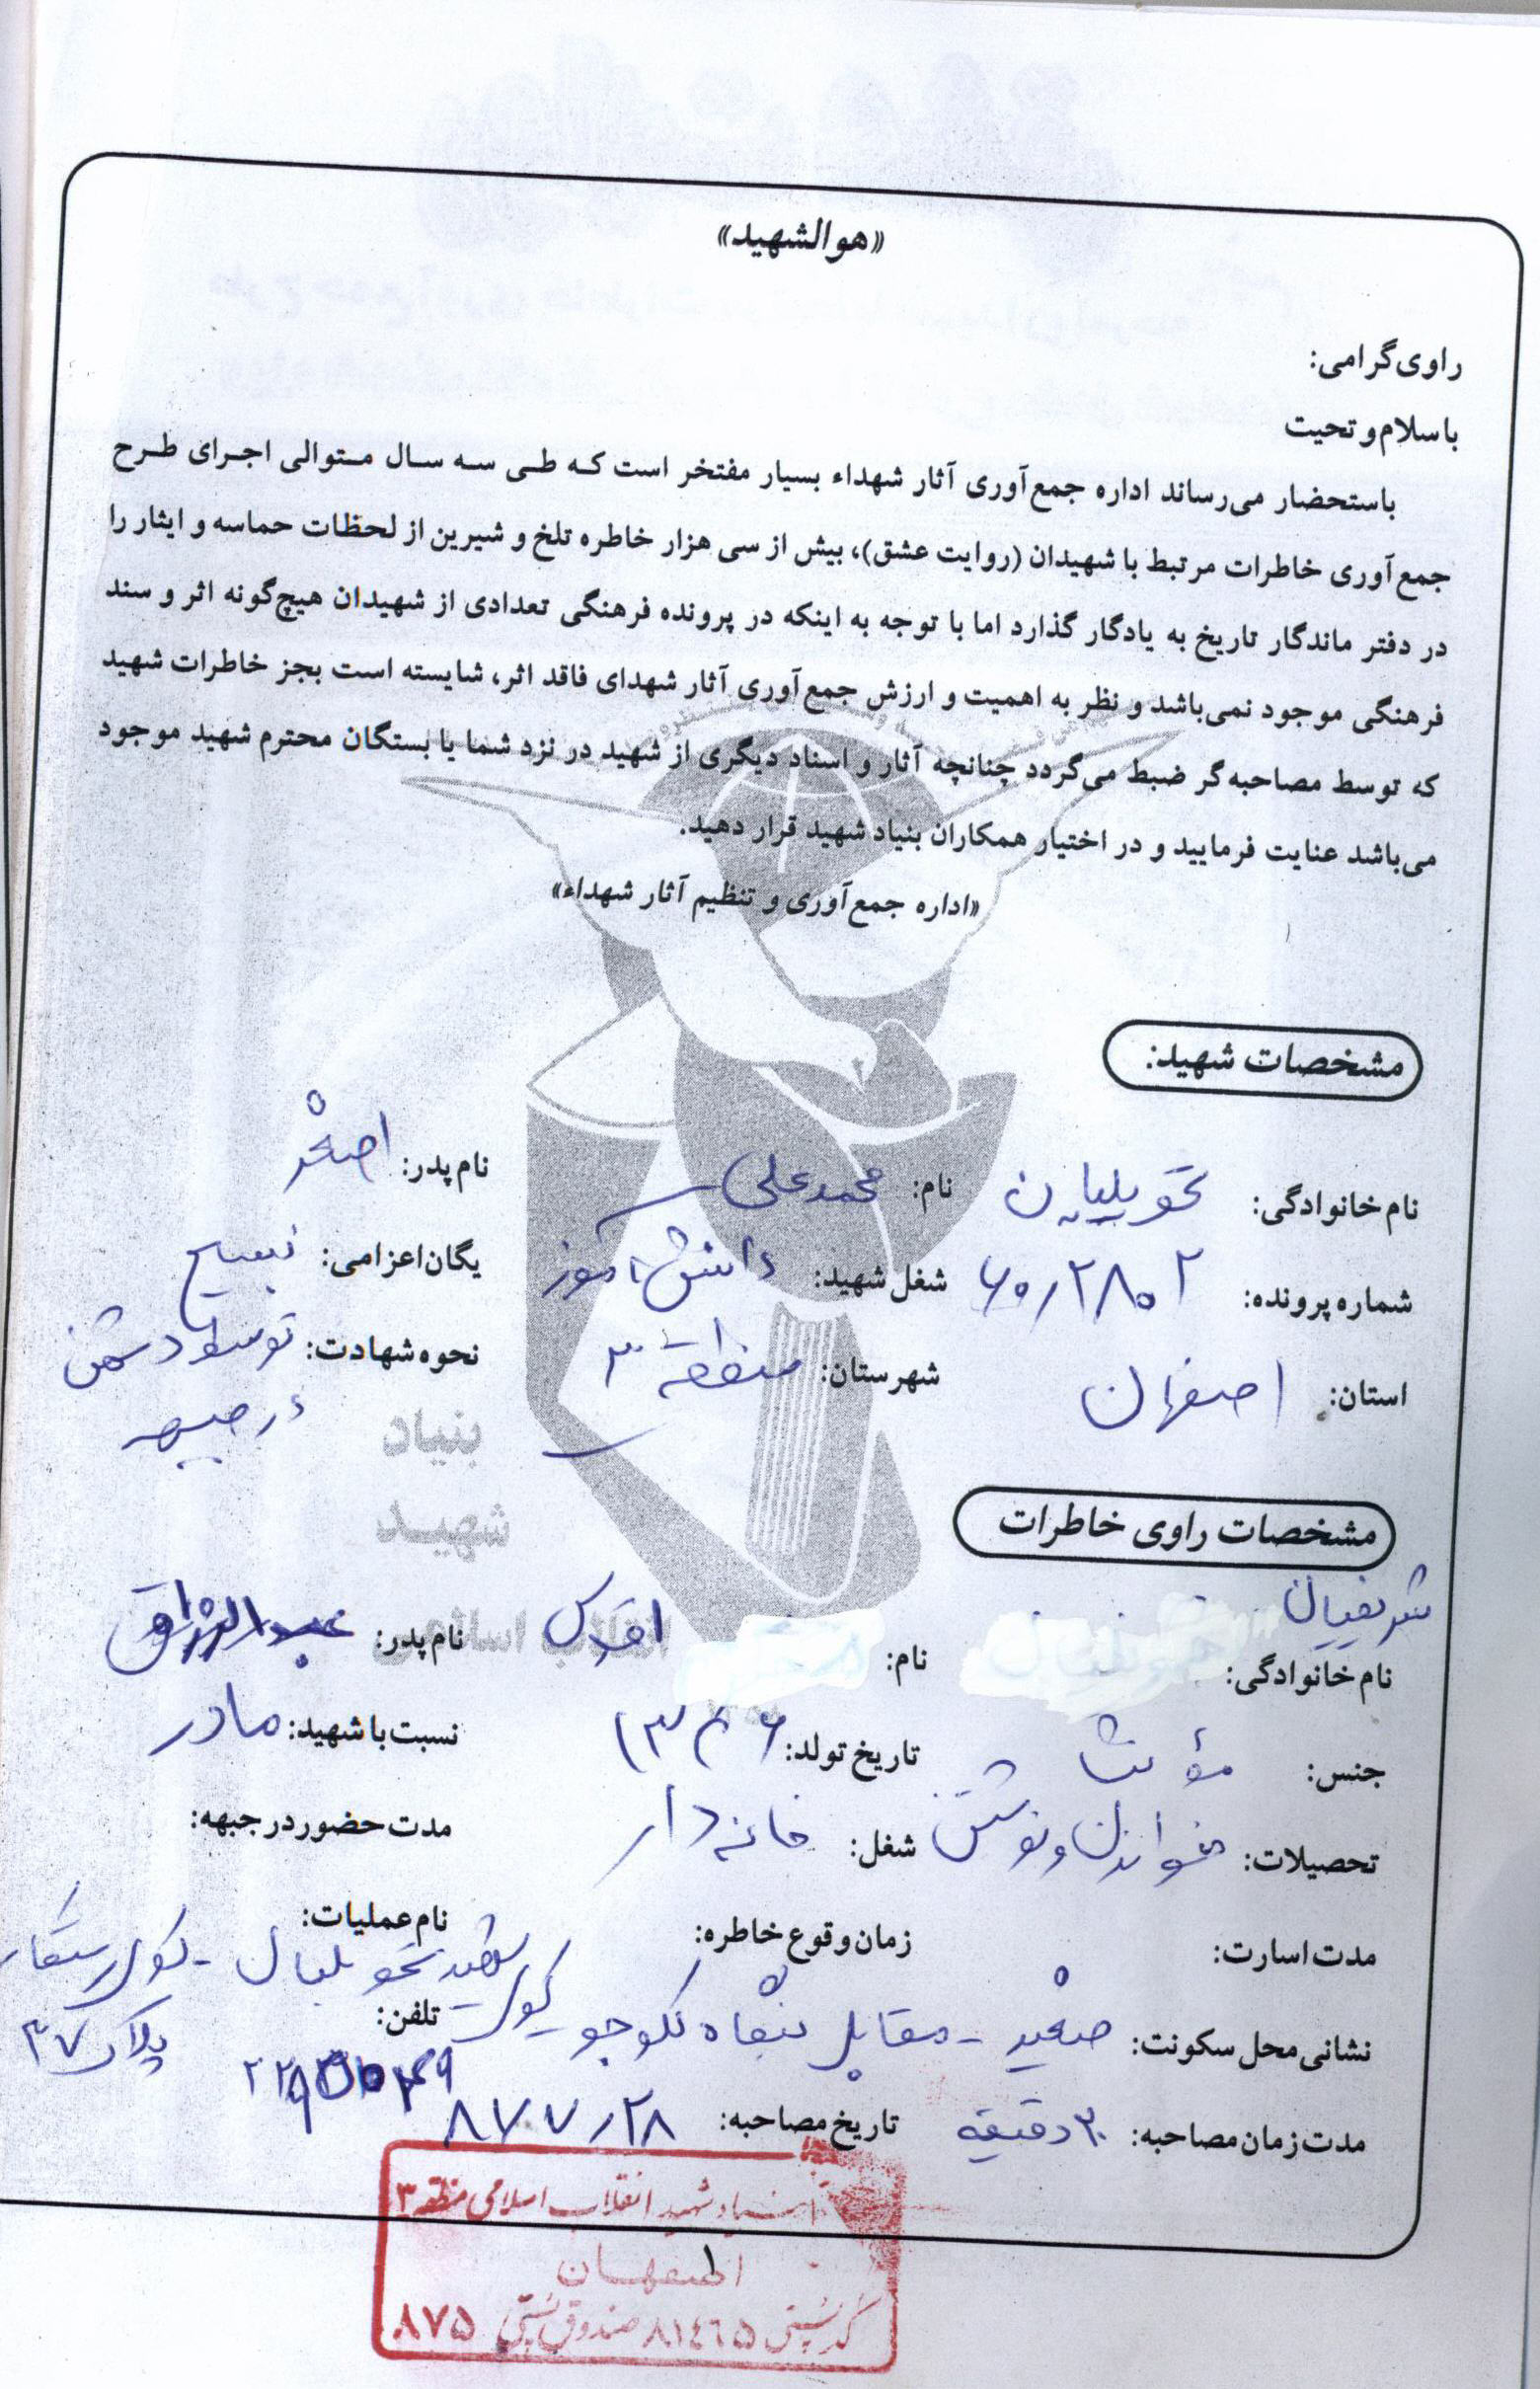 «هوالشهید»
راوی گرامی:
با سلام و تحیت
باستحضار می‌رساند اداره جمع‌آوری آثار شهداء بسیار مفتخر است که طی سه سال متوالی اجرای طرح
جمع‌آوری خاطرات مرتبط با شهیدان (روایت عشق)، بیش از سی هزار خاطره تلخ و شیرین از لحظات حماسه و ایثار را
در دفتر ماندگار تاریخ به یادگار گذارد اما با توجه به اینکه در پرونده فرهنگی تعدادی از شهیدان هیچ‌گونه اثر و سند
فرهنگی موجود نمی‌باشد و نظر به اهمیت و ارزش جمع‌آوری آثار شهدای فاقد اثر، شایسته است بجز خاطرات شهید
که توسط مصاحبه‌گر ضبط می‌گردد چنانچه آثار و اسناد دیگری از شهید در نزد شما یا بستگان محترم شهید موجود
می‌باشد عنایت فرمایید و در اختیار همکاران بنیاد شهید قرار دهید.
«اداره جمع‌آوری و تنظیم آثار شهداء»
مشخصات شهید:
نام خانوادگی: تحویلیان نام: محمدعلی نام پدر: اصغر
شماره پرونده: ۶۰/۲۸۰۲ شغل شهید: دانش آموز یگان اعزامی: بسیج
استان: اصفهان شهرستان: منطقه ۳ نحوه شهادت: توسط دشمن
در جبهه
بنیاد
شهید
مشخصات راوی خاطرات
شریفیان
نام خانوادگی: نام: اقدس نام پدر: عبدالرزاق
جنس: مؤنث تاریخ تولد: ۱۳۲۶ نسبت با شهید: مادر
تحصیلات: خواندن و نوشتن شغل: خانه دار مدت حضور در جبهه:
مدت اسارت: زمان وقوع خاطره: نام عملیات:
نشانی محل سکونت: مقابل کوی شهید تحویلیان - کوی
تلفن: پلاک ۳۷
مدت زمان مصاحبه: ۳۰ دقیقه تاریخ مصاحبه: ۸۷/۷/۲۸
بنیاد شهید انقلاب اسلامی منطقه ۳
اصفهان
کد پستی ۸۱۴۶۵ صندوق پستی ۸۷۵